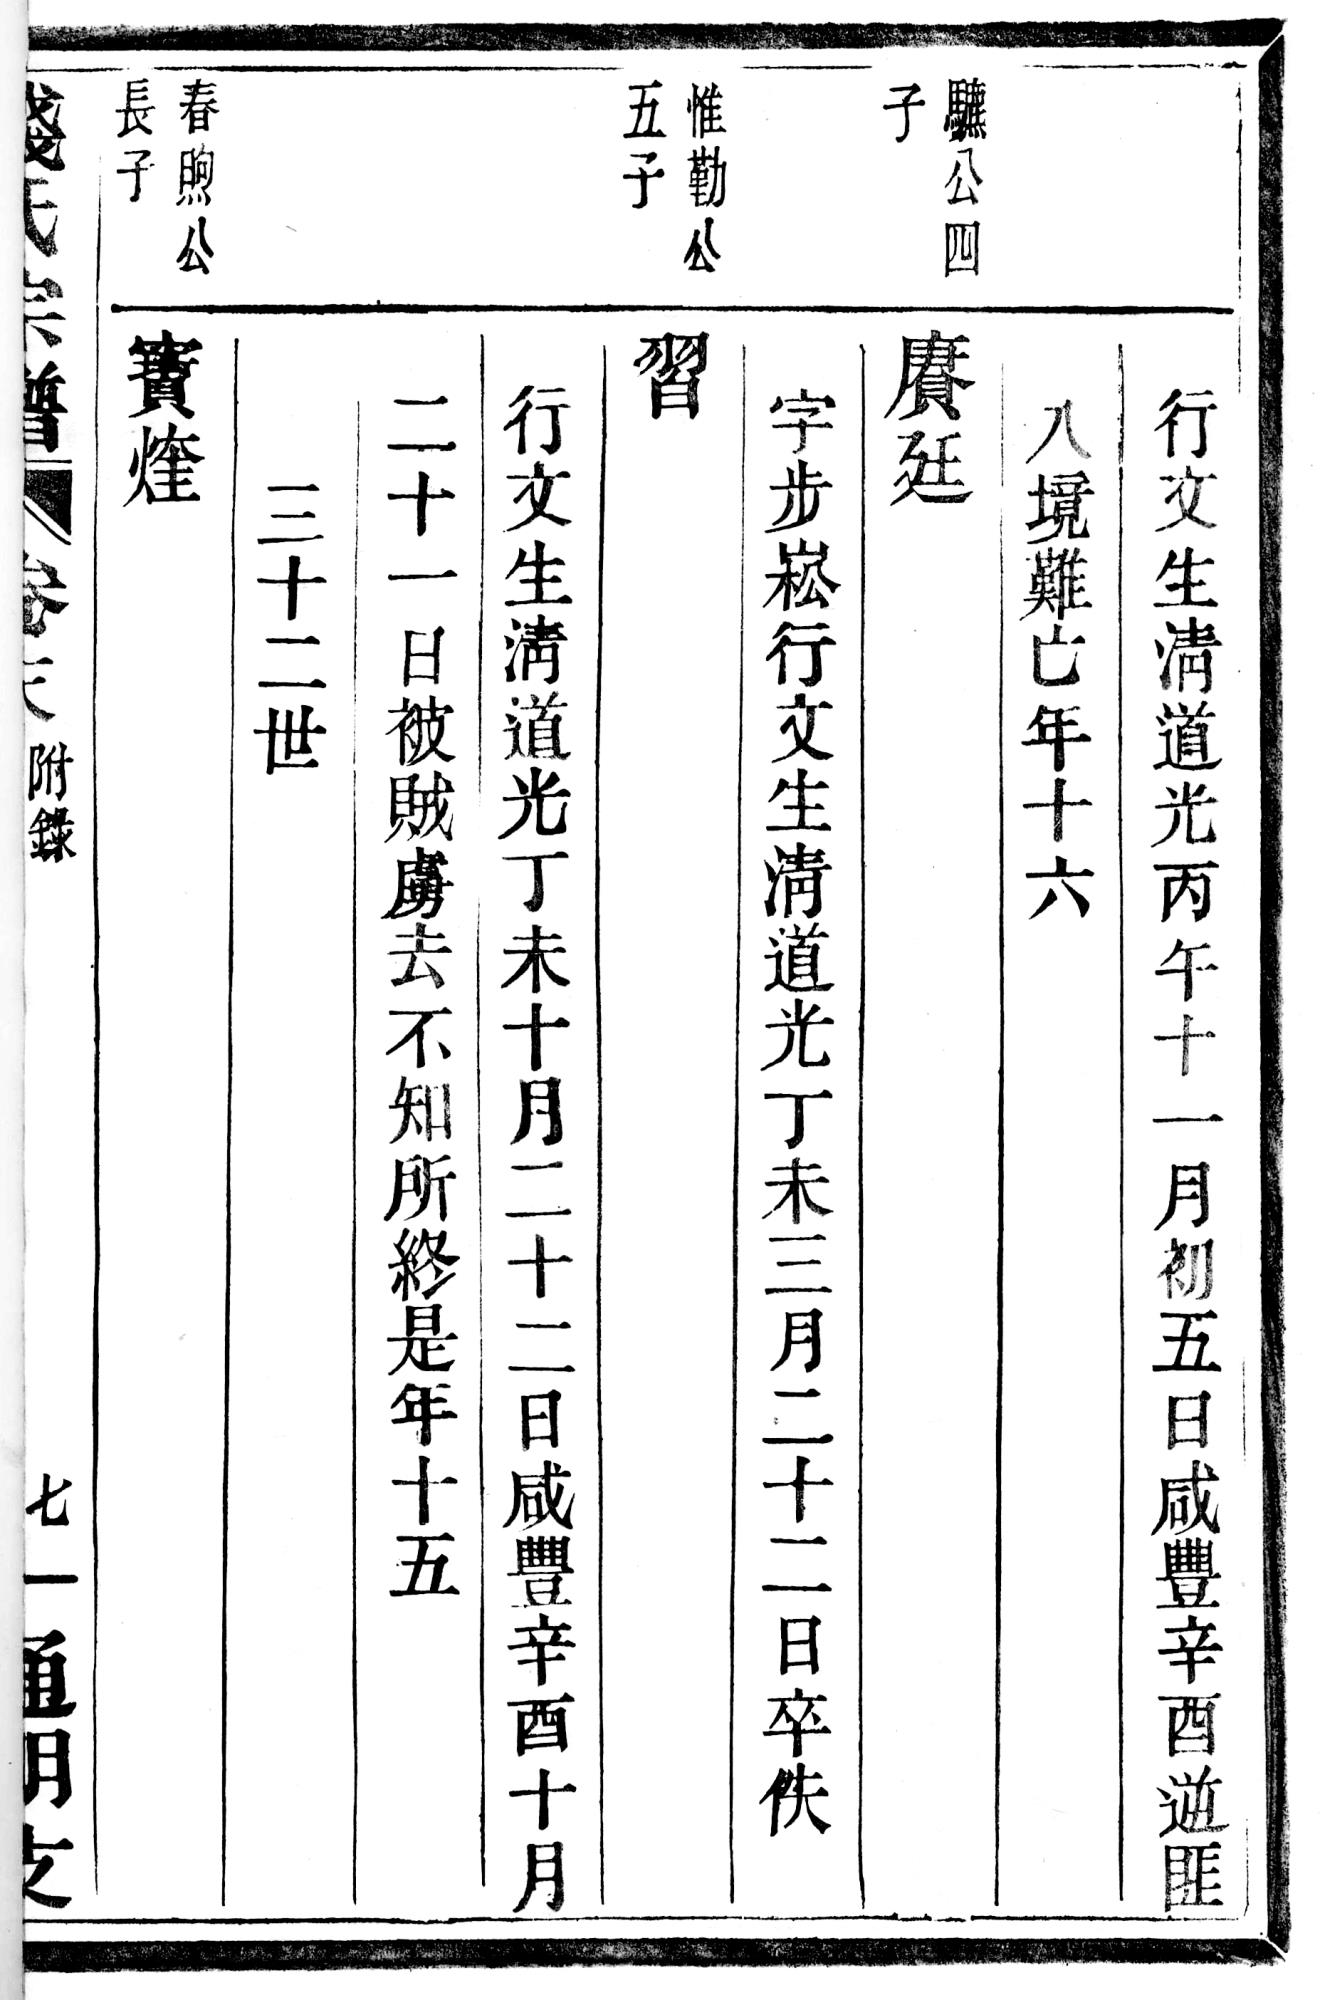 行文生淸道光丙午十一月初五日咸豐辛酉逆匪
八境難亡年十六
驥公四
子
賡廷
字步崧行文生淸道光丁未三月二十二日卒佚
惟勤公
五子
習
行文生淸道光丁未十月二十二日咸豐辛酉十月
二十一日被賊虜去不知所終是年十五
三十二世
春煦公
長子
寶煃
錢氏宗譜 卷末 附錄 七一 通明支